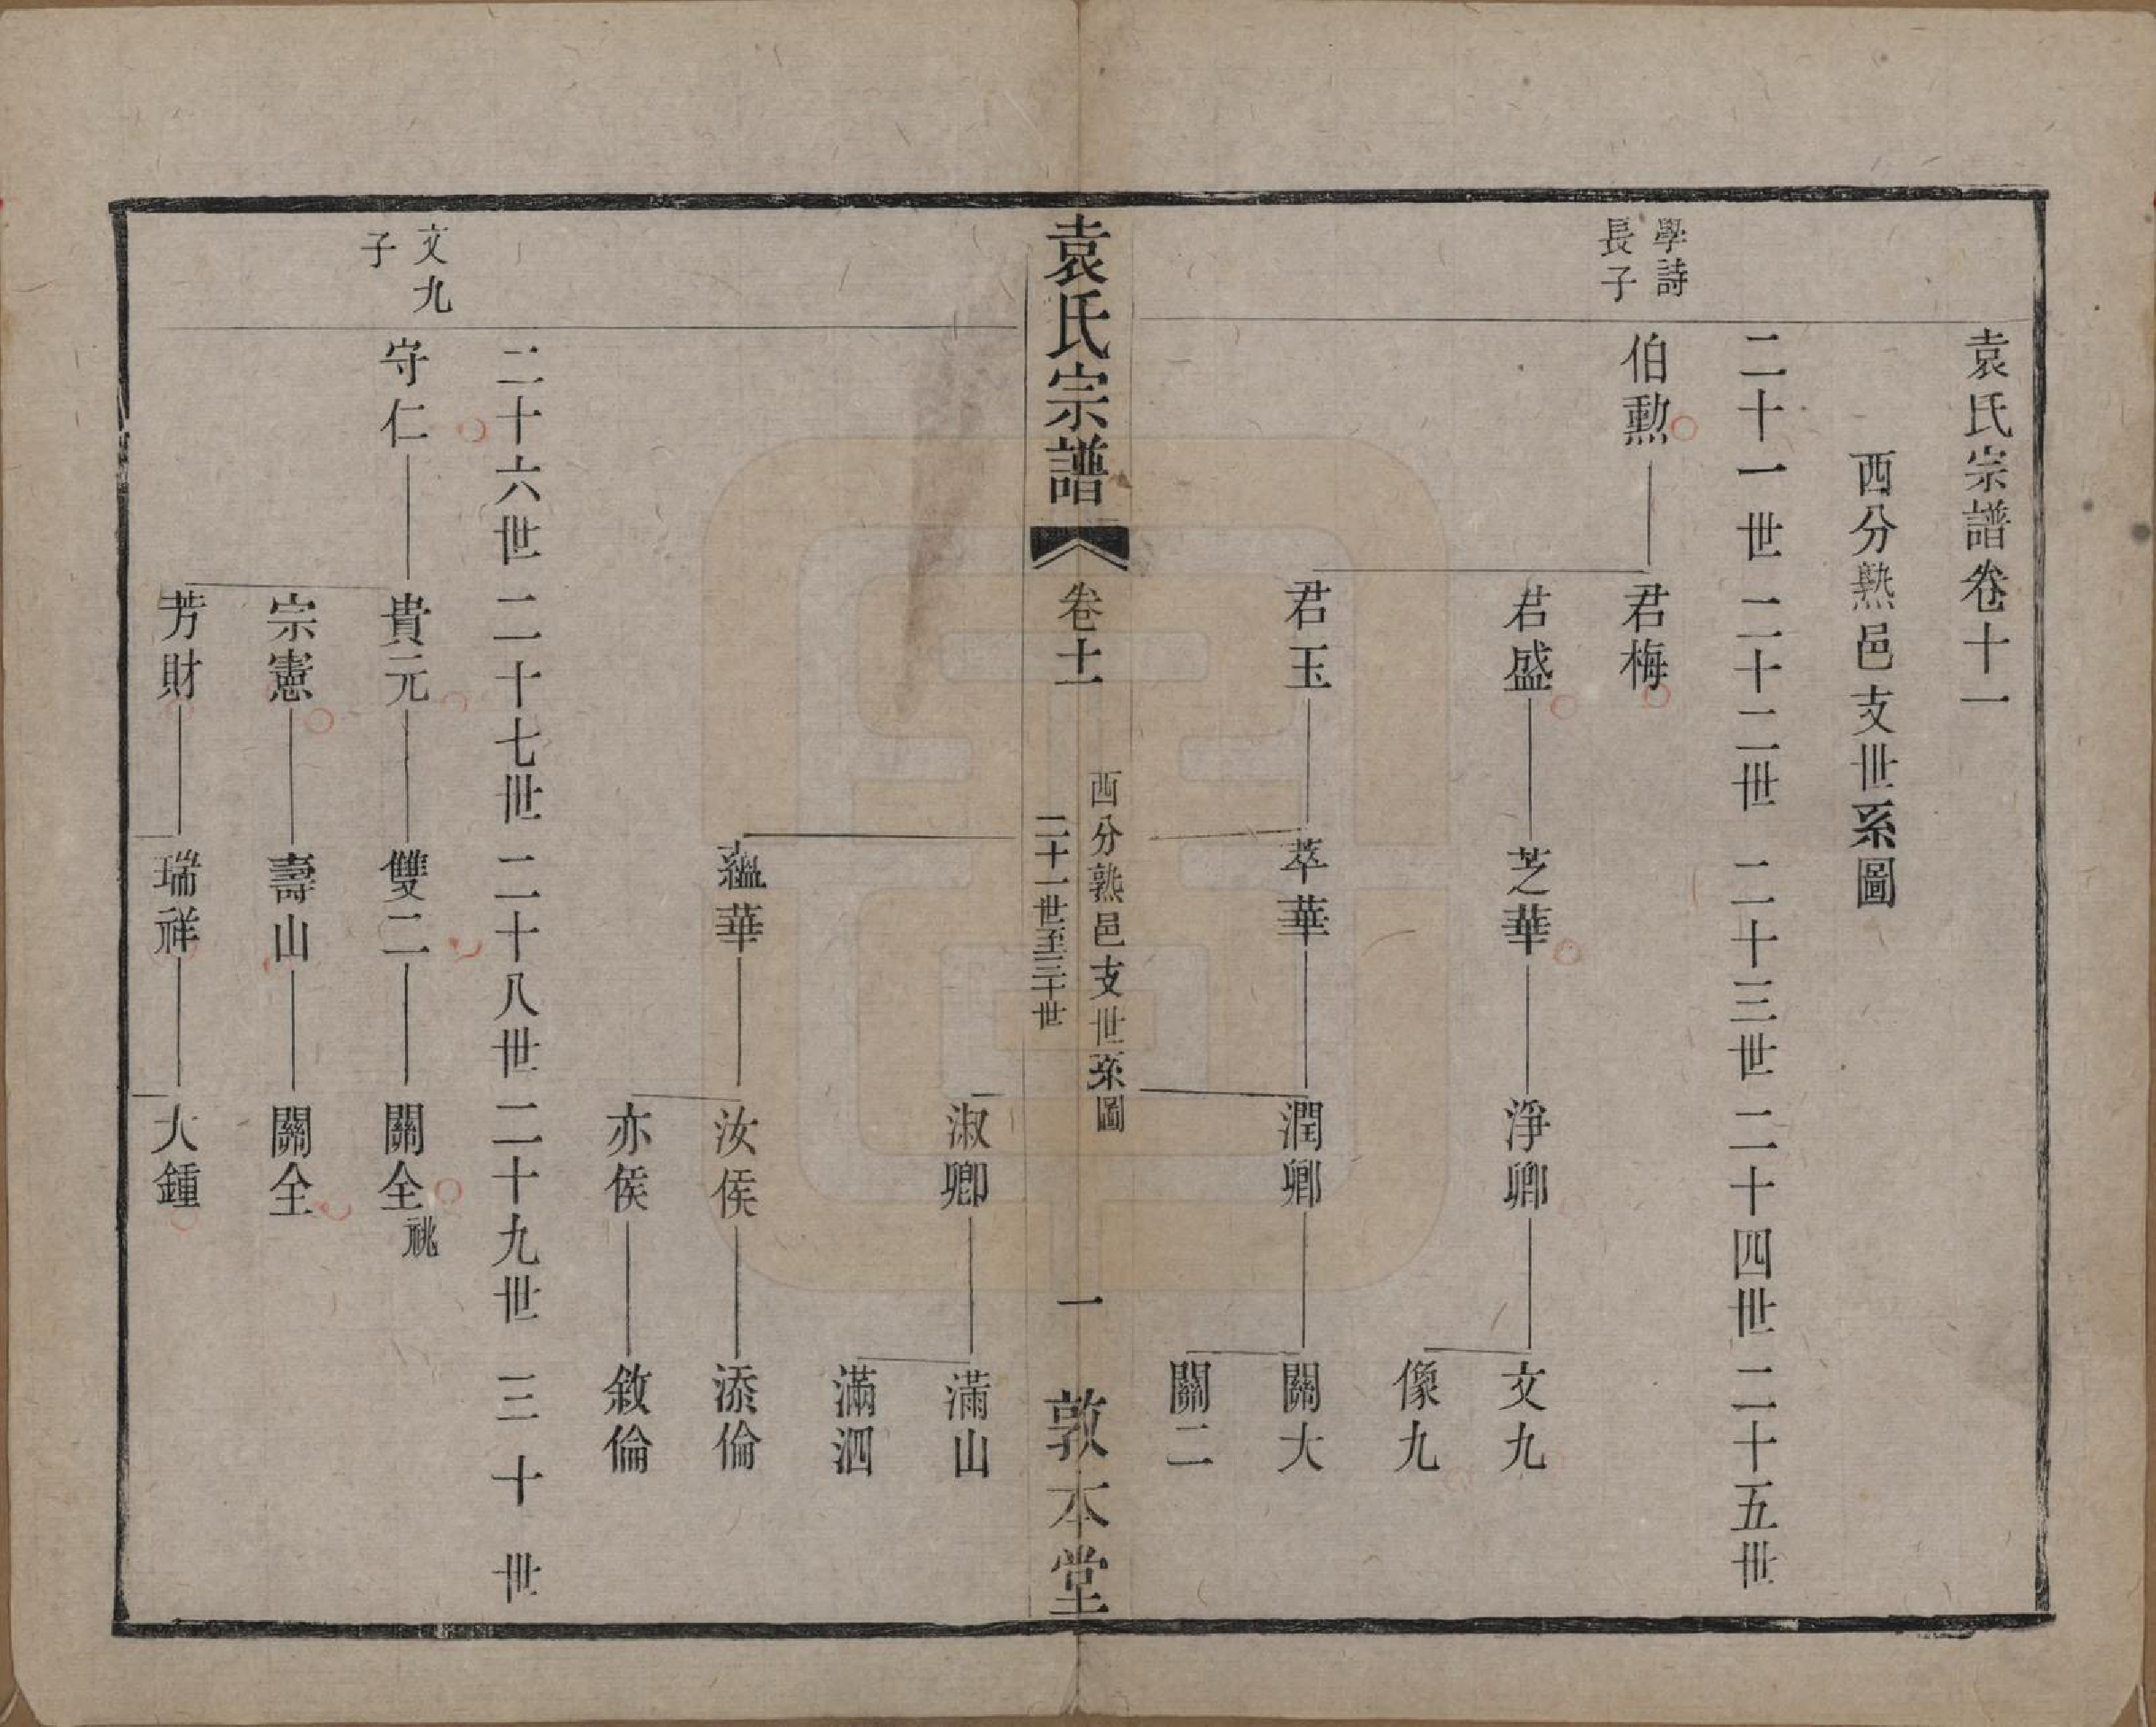 袁氏宗譜卷十一
西分熟邑支世系圖
二十一世 二十二世 二十三世 二十四世 二十五世
學詩
長子
伯勲 君梅
君盛 芝華 淨卿 文九
像九
君玉 萃華 潤卿 關大
關二
袁氏宗譜 卷十一 西分熟邑支世系圖
二十一世至三十世
一 敦本堂
淑卿 滿山
滿泗
蘊華 汝侯 添倫
亦侯 敘倫
二十六世 二十七世 二十八世 二十九世 三十世
文九
子
守仁 貴元 雙二 關全祧
宗憲 壽山 關全
芳財 瑞祥 大鍾